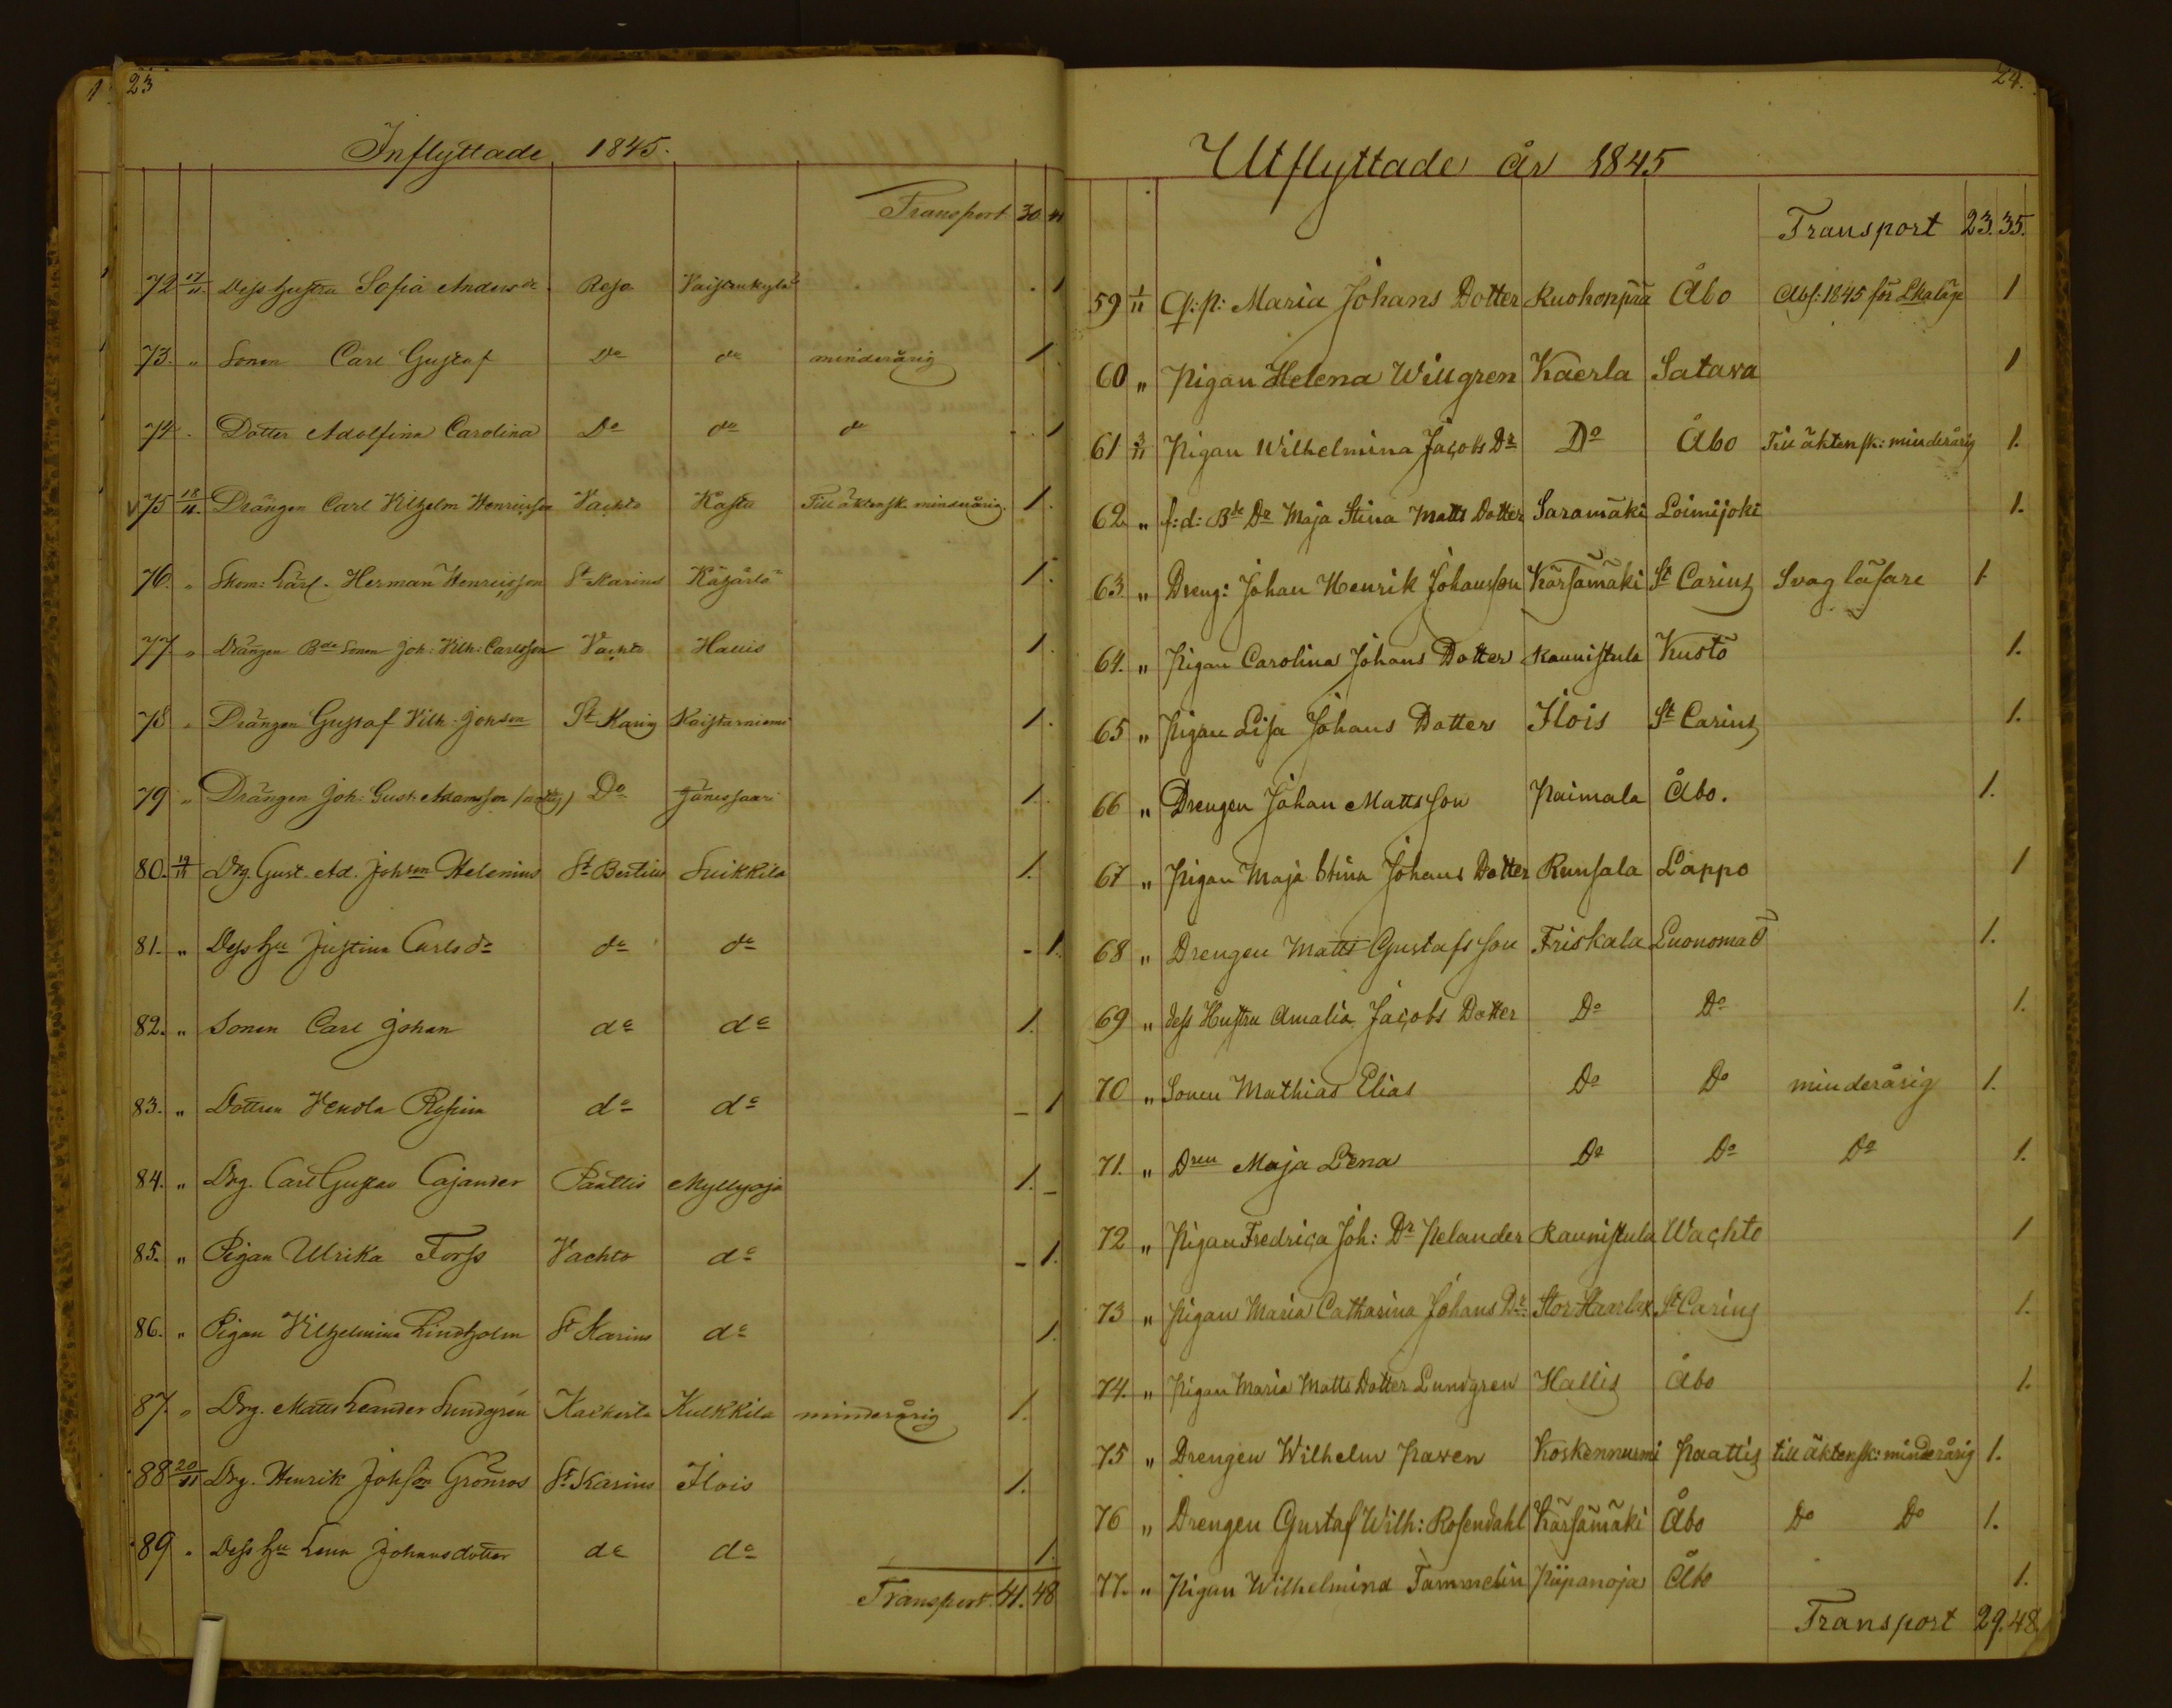 23
Inflyttade 1845.
Transport 30 41
72 17/11. Dess hustru Sofia Andersdr Reso Vaistenkylä . 1
73. " Sonen Carl Gustaf Do do minderårig 1
74 . Dotter Adolfina Carolina Do do do - 1
V 75 18/11. Drängen Carl Vilhelm Henricsson Vachto Kasta Till äktensk. minderårig. 1.
76. " Skom: Lärl. Herman Henricsson St Karins 1.
77. " Drängen Bde Sonen Joh: Vilh: Carlsson Vachto Hallis 1.
78 " Drängen Gustaf Vilh. Johson St Karins Kaistarniemi 1.
79 " Drängen Joh: Gust. Adamsson Do Jänessaari 1.
80. 19/11 Drg. Gust. Ad. Johson Helenius St Bertils Suikkila 1.
81. " Dess Hu Justina Carlsdr do do - 1.
82. " Sonen Carl Johan do do 1.
83. " Dottren Vendla Rosina do do - 1
84. " Drg. Carl Gustav Cajander Paattis Myllyoja 1. -
85. " Pigan Ulrika Forss Vachto do - 1.
86. " Pigan Vilhelmina Lindholm St Karins do 1.
87. " Drg. Matts Leander Lundgrén Kulkkila minderårig 1.
88 20/11 Drg. Henrik Johson Grönros St Karins Ilois 1.
89 " Dess Hu Lena Johansdotter do do 1.
Transport. 41. 48
24.
Utflyttade år 1845
Transport 23. 35.
59 1/11 Q: p: Maria Johans Dotter Ruohonpää Åbo Abs: 1845 för Lkaläge 1
60 " Pigan Helena Willgren Kaerla Satava 1
61 3/11 Pigan Wilhelmina Jacobs Dr Do Åbo Till äktensk: minderårig 1.
62. " f: d: Bde Dr Maja Stina Matts Dotter Saramäki Loimijoki 1.
63. " Dreng: Johan Henrik Johansson Kärsämäki St Carins Svag läsare 1.
64. " Pigan Carolina Johans Dotter Raunistula Kustö 1.
65 " Pigan Lisa Johans Dotter Ilois St Carins 1.
66 " Drengen Johan Mattsson Paimala Åbo. 1.
67 " Pigan Maja Stina Johans Dotter Runsala Lappo 1
68 " Drengen Matts Gustafsson Friskala Luonomaa 1.
69 " dess Hustru Amalia Jacobs Dotter Do Do 1.
70 " Sonen Mathias Elias Do Do minderårig 1.
71. " Dren Maja Lena Do Do Do 1.
72 " Pigan Fredrica Joh: Dr Pelander Raunistula Wachto 1
73 " Pigan Maria Catharina Johans Dr Stor Haarlax St Carins 1.
74. " Pigan Maria Matts Dotter Lundgren Hallis Åbo 1.
75 " Drengen Wilhelm Paven Koskennurmi Paattis till äktensk: minderårig 1.
76 " Drengen Gustaf Wilh: Rosendahl Kärsämäki Åbo Do Do 1.
77. " Pigan Wilhelmina Tammelin Piipanoja Åbo 1.
Transport 29. 48.